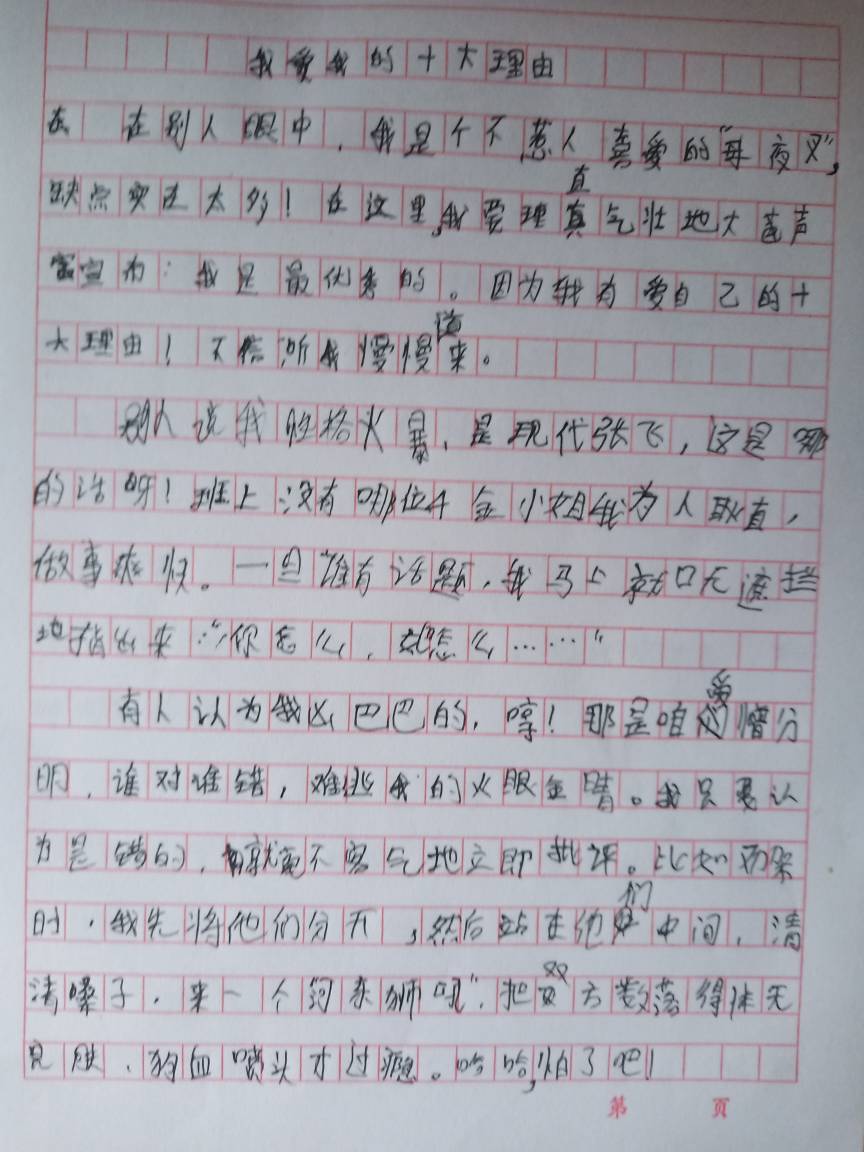 我爱我的十大理由
在别人眼中,我是个不惹人喜爱的“母夜叉”,
缺点实在太多!在这里,我要理直气壮地大声
宣布:我是最优秀的。因为我有爱自己的十
大理由!不信,听我慢慢道来。
别人说我性格火暴,是现代张飞,这是哪
的话呀!班上没有哪位千金小姐我为人耿直,
做事爽快。一旦谁有话题,我马上就口无遮拦
地指出来:“你怎么,怎么……”
有人认为我凶巴巴的,哼!那是咱爱憎分
明,谁对谁错,难逃我的火眼金睛。我只要认
为是错的,就不客气地立即批评。比如
时,我先将他们分开,然后站在他们中间,清
清嗓子,来一个“河东狮吼”,把双方数落得体无
完肤,狗血喷头才过瘾。哈哈,怕了吧!
第 页